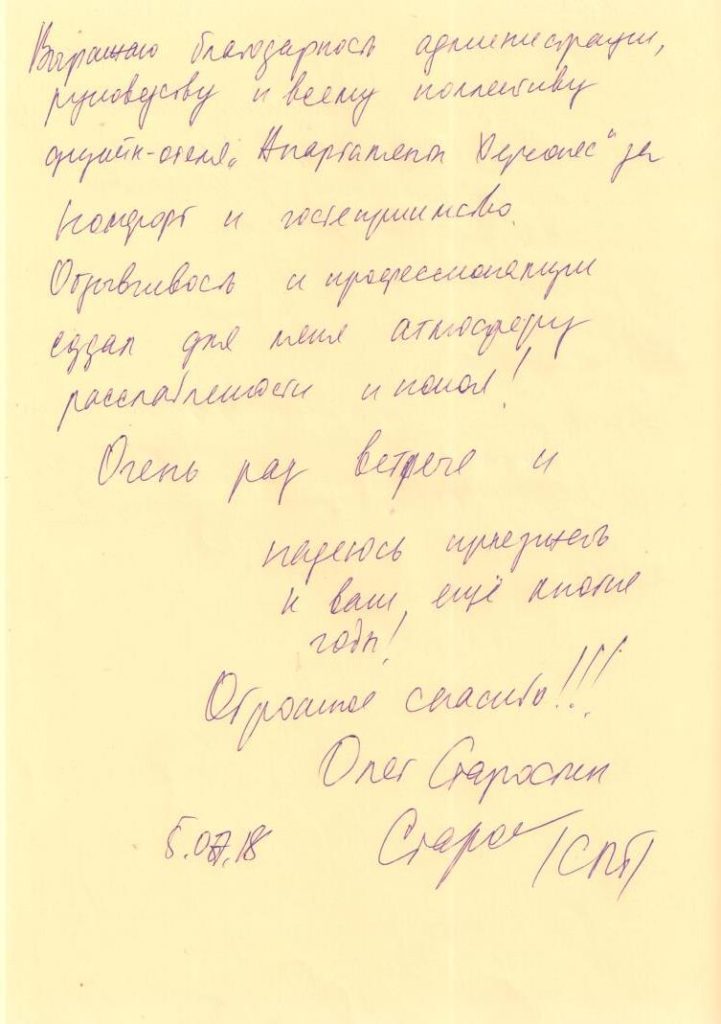 Выражаю благодарность администрации,
руководству и всему коллективу
фрутик-отеля „Апартаменты Херсонес" за
комфорт и гостеприимство.
Отзывчивость и профессионализм
создал для меня атмосферу
расслабленности и покоя!
Очень рад встрече и
надеюсь приезжать
к вам ещё многие
годы!
Огромное спасибо!!!
Олег Старостин
5.07.18 Старос /СПб/